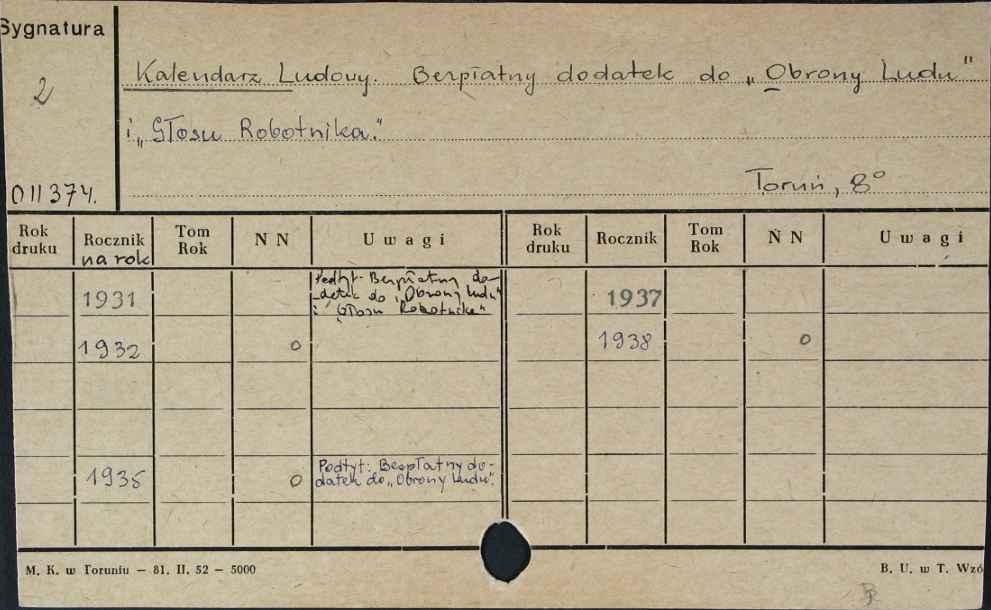 Sygnatura
2
011374.
Kalendarz Ludowy. Bezpłatny dodatek do „Obrony Ludu"
i „Głosu Robotnika."
Toruń, 8°
Rok druku Rocznik na rok Tom Rok N N Uwagi Rok druku Rocznik Tom Rok N N Uwagi
1931 Podtyt. Bezpłatny do-
datek do „Obrony Ludu"
i „Głosu Robotnika" 1937
1932 0 1938 0
1935 0 Podtyt: Bezpłatny do-
datek do „Obrony Ludu".
M. K. w Toruniu – 81. II. 52 – 5000 B. U. w T. Wzó